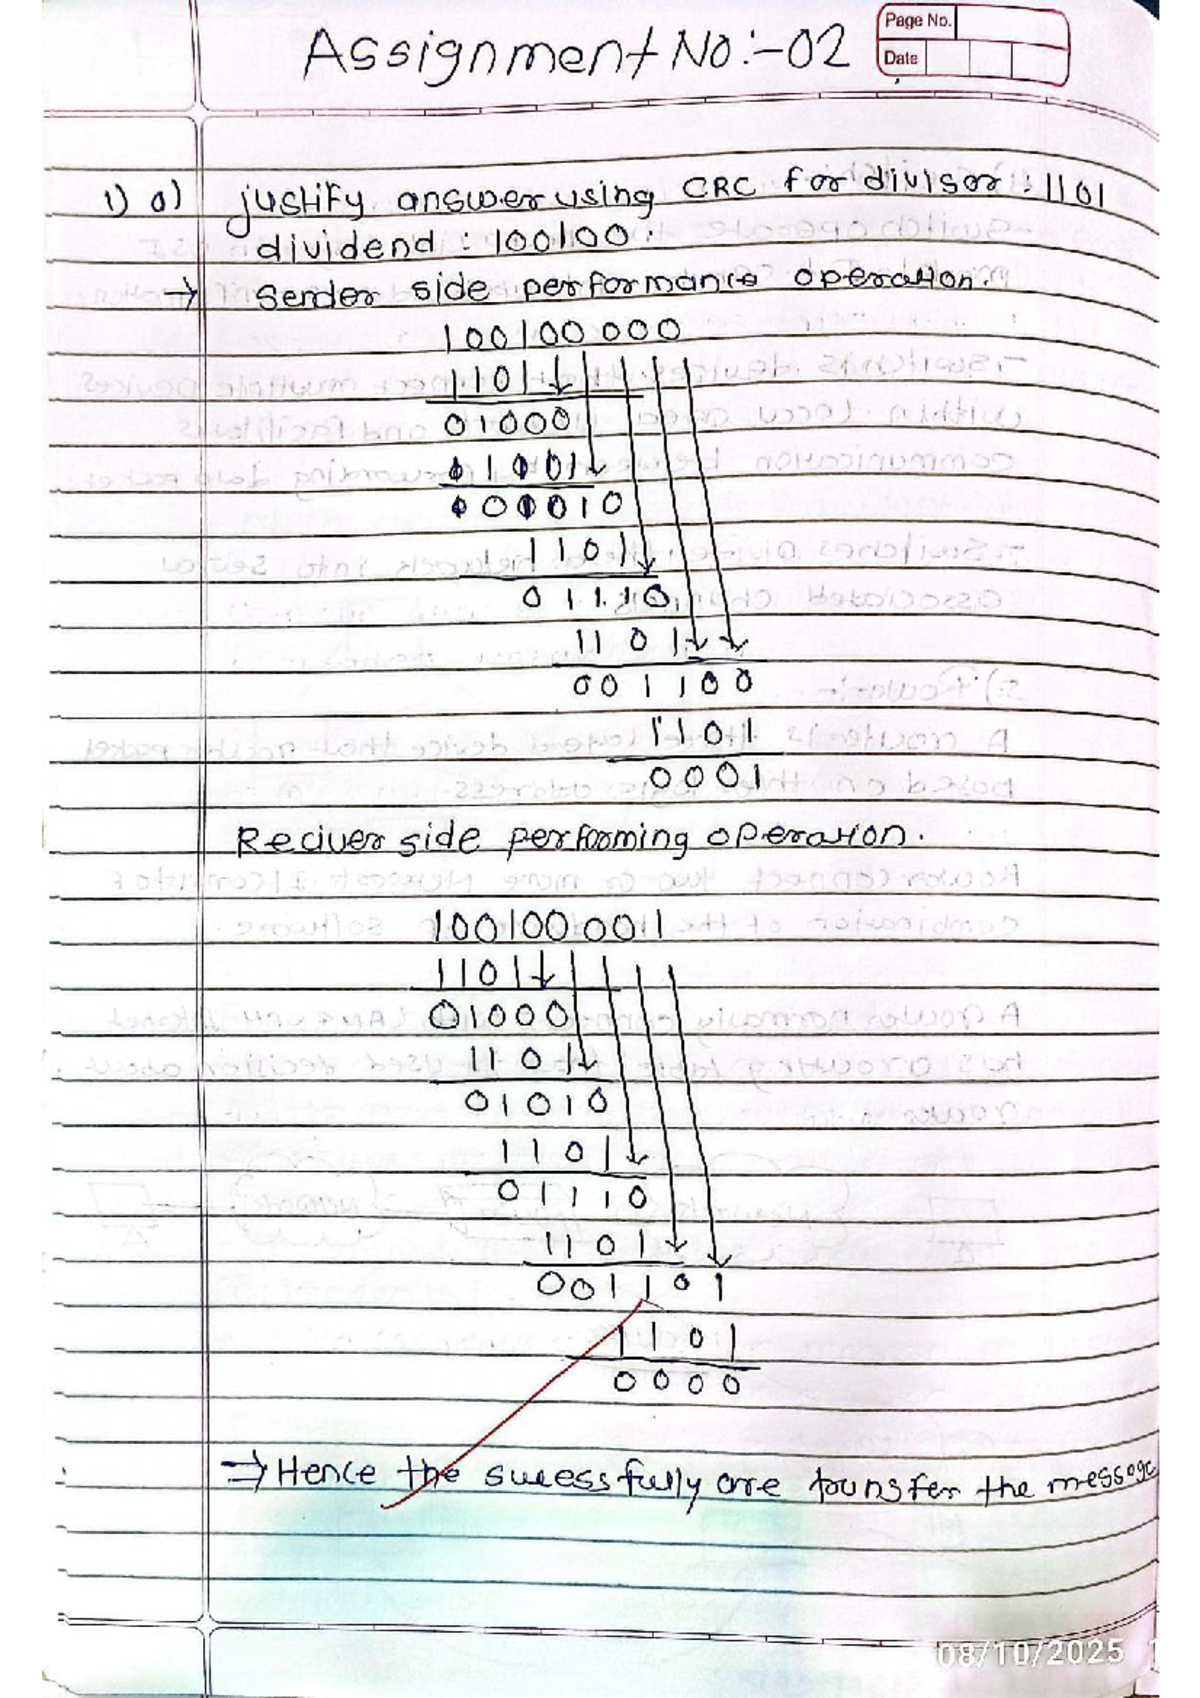 Assignment No:-02
Page No.
Date
1) a) justify answer using CRC for divisor : 1101
dividend : 100100.
→ Sender side performance operation.
100100 000
1101
01000
01001
000010
1101
01110
1101
001100
1101
0001
Reciver side performing operation.
100100 001
1101
01000
1101
01010
1101
01110
1101
001101
1101
0000
⇒ Hence the sucessfully are transfer the message
08/10/2025 1